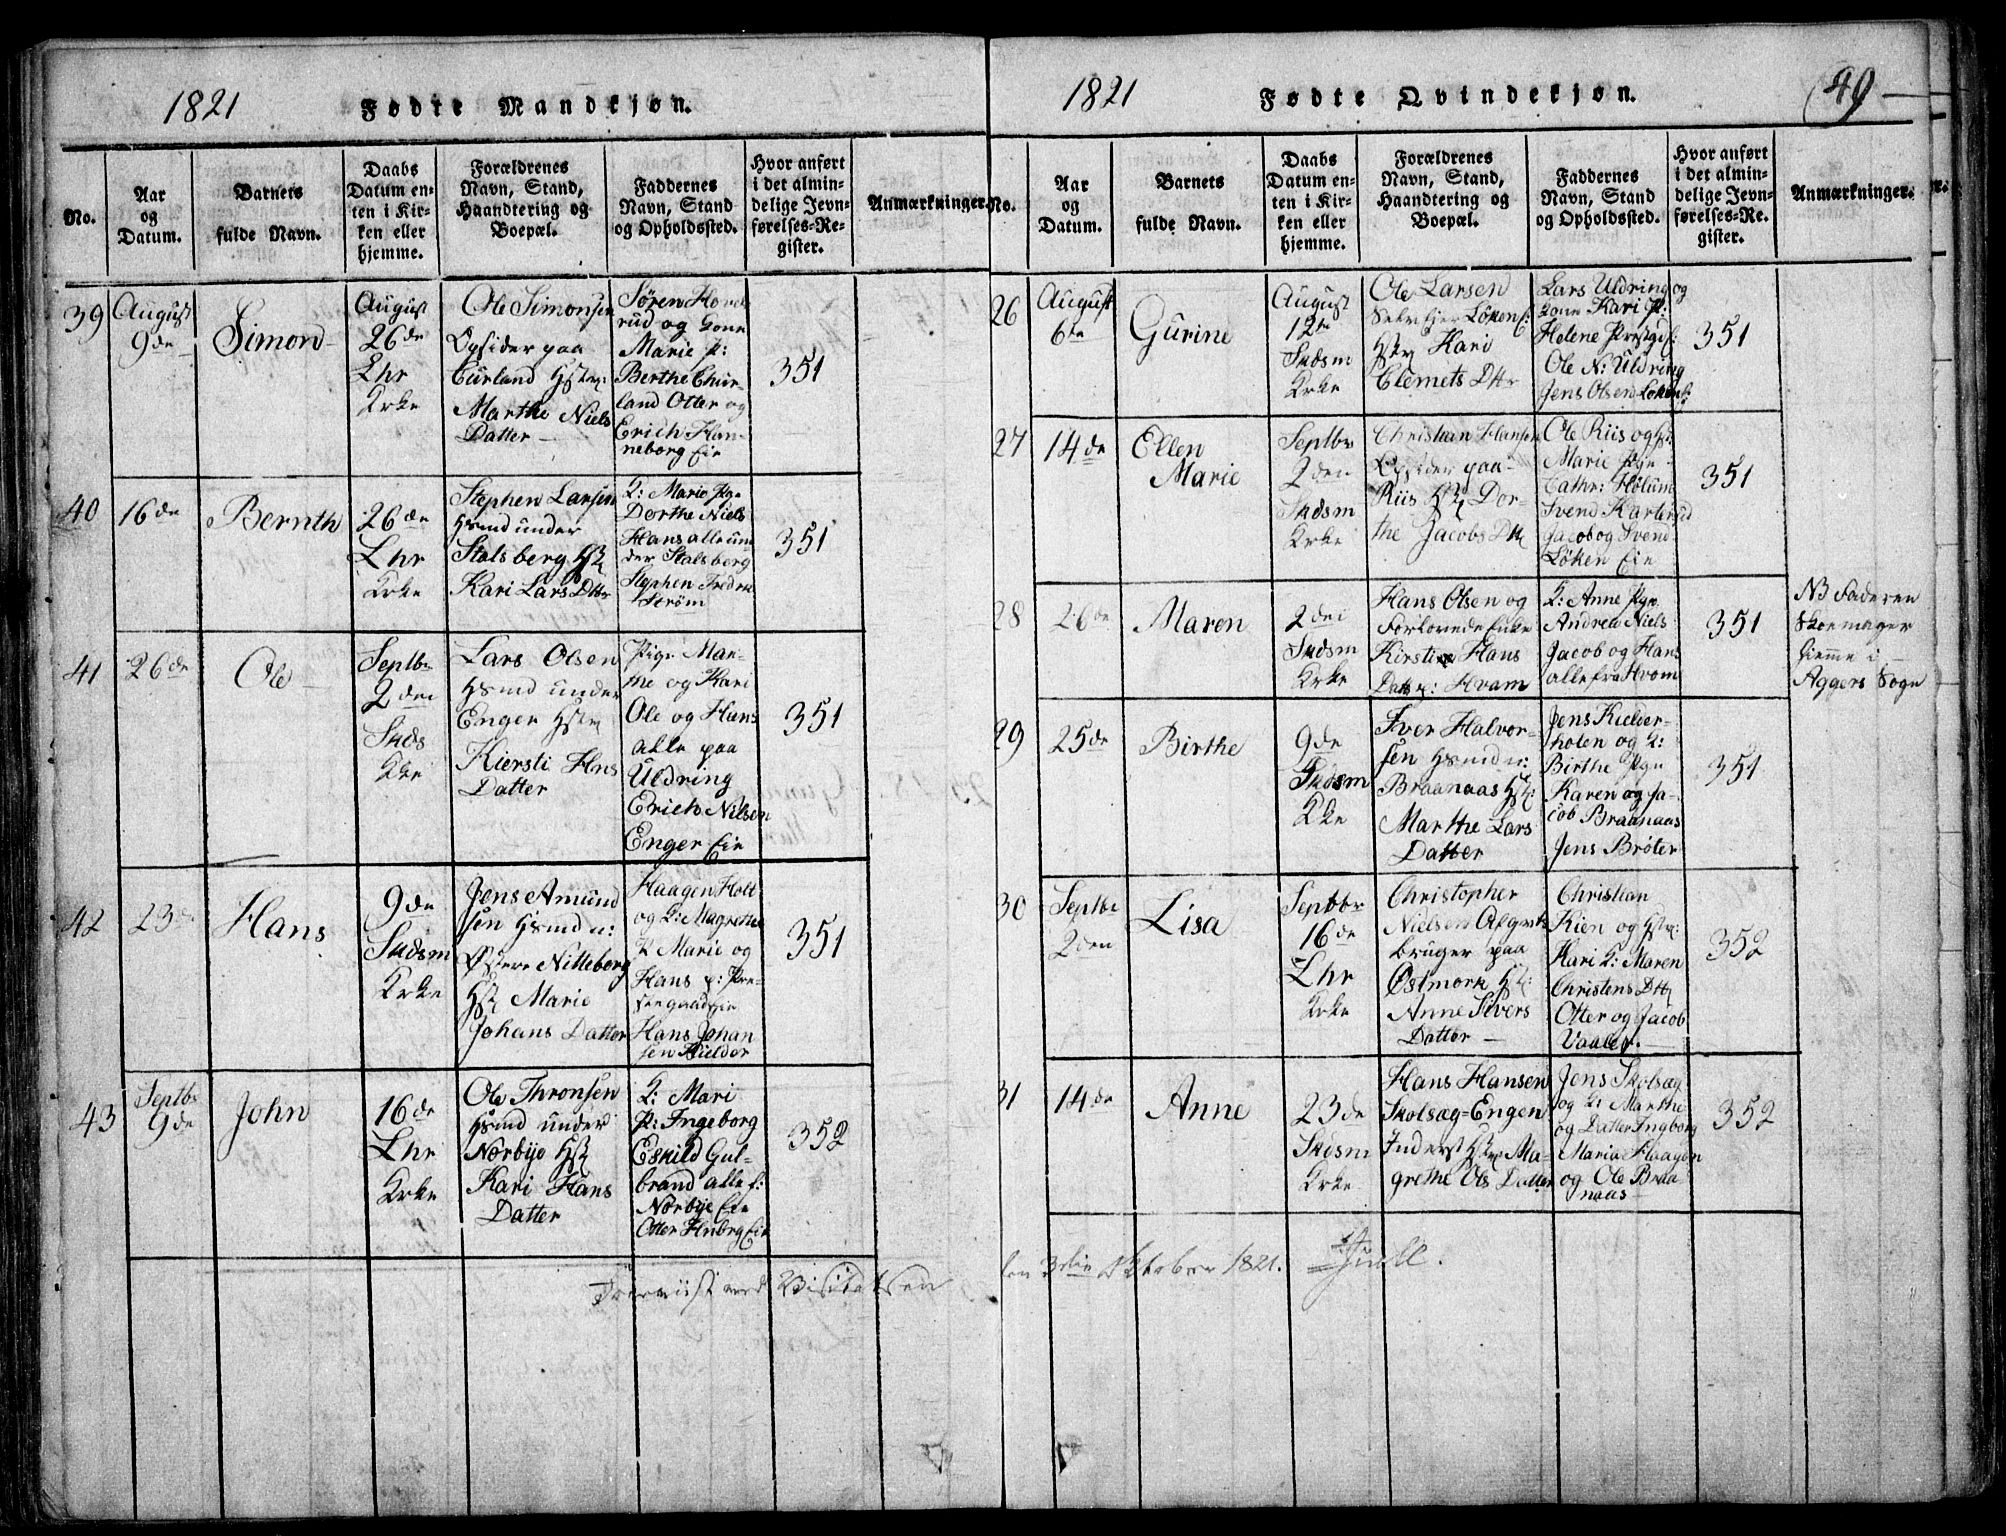 1821
Fødte Mandkjøn.
No.
Aar
og
Datum.
Barnets
fulde Navn.
Daabs
Datum en-
ten i Kir-
ken eller
hjemme.
Forældrenes
Navn, Stand,
Haandtering og
Boepæl.
Faddernes
Navn, Stand
og Opholdssted.
Hvor anført
i det almin-
delige Jevn-
førelses-Re-
gister.
Anmærkninger.
39
August
9de
Simon
August
26de
Lhr
Krke
Ole Simonsen
Opsider paa
Curland Hstr:
Marthe Niels
Datter
Søren Hovel
rud og Kone
Marie P:
Berthe Chur-
land Otter og
Erich Han-
neborg Eie
351
40
16de
Bernth
26de
Lhr
Krke
Stephen Larsen
Hsmd under
Stalsberg Hst
Kari Lars Dttr
K: Marie Pge
Dorthe Niels
Hans alle un
der Stalsberg
Stephen Fredrik
Strøm
351
41
26de
Ole
Septbr
2den
Skds
Kke
Lars Olsen
Hsmd under
Enger Hstr
Kiersti Hns
Datter
Pige Mar-
the og Kari
Ole og Hans
alle paa
Uldring
Erich Nilsen
Enger Eie
351
42
23de
Hans
9de
Skdsm
Krke
Jens Amund
sen Hsmd u:
Østere Nitteberg
Hst Marie
Johans Datter
Haagen Holt
og K: Magrethe
P Marie og
Hans p: Pre-
stegaardseie
Hans Johan
sen Kielder
351
43
Septbr
9de
John
16de
Lhr
Krke
Ole Thronsen
Hsmd under
Nørbye Hst
Kari Hans
Datter
K: Mari
P: Ingeborg
Eskild Gul-
brand alle f:
Nørbye Eie
Otter Huberg Eie
352
Foreviist ved Visitatsen
1821
Fødte Qvindekjøn.
49
No.
Aar
og
Datum.
Barnets
fulde Navn.
Daabs
Datum en-
ten i Kir-
ken eller
hjemme.
Forældrenes
Navn, Stand,
Haandtering og
Boepæl.
Faddernes
Navn, Stand
og Opholdssted.
Hvor anført
i det almin-
delige Jevn-
førelses-Re-
gister.
Anmærkninger.
26
August
6te
Gurine
August
12te
Skdsm
Krke
Ole Larsen
Selveier Løkens:
Hstr Kari
Clemets Dttr
Lars Uldring og
Kone Kari P:
Helene Prestgd:
Ole N: Uldring
Jens Olsen Løken:
351
27
14de
Ellen
Marie
Septbr
2den
Skdsm
Krke
Christian Hansen
Opsider paa
Riis Hst Dor-
the Jacobs Dtt
Ole Riis og Hst:
Marie Pge
Cathr: Hølum
Svend Karterud
Jacob og Svend
Løken Eie
351
28
26de
Maren
2den
Skdsm
Krke
Hans Olsen og
Forlovede Enke
Kirstie Hans
Dattr: Hvam
K: Anne Pge
Andrea Niels
Jacob og Hans
alle fra Hvam
351
NB Faderen
Skoemager
hiemme i
Aggers Sogn
29
25de
Birthe
9de
Skdsm
Kke
Iver Halvor-
sen Hsmd u:
Braanaas Hst:
Marthe Lars
Datter
Jens Kielder-
holen og K:
Birthe Pge
Karen og Ja-
cob Braanaas
Jens Brøter
351
30
Septbr
2den
Lisa
Septbr
16de
Lhr
Krke
Christopher
Nielsen Afgrøde
bruger paa
Østmork Hst:
Anne Sivers
Datter
Christian
Rien og Hstr:
Kari K: Maren
Christens Dtt
Otter og Jacob
Vaaler.
352
31
14de
Anne
23de
Skdsm
Krke
Hans Hansen
Skolsæg=Engen
Inderst Hstr Ma-
grethe Ols Datter
Jens Skolsæg
og K: Marthe
og Datter Ingborg
Maria Haagen
og Ole Braa
naas
352
den 3die Oktober 1821. Juell.